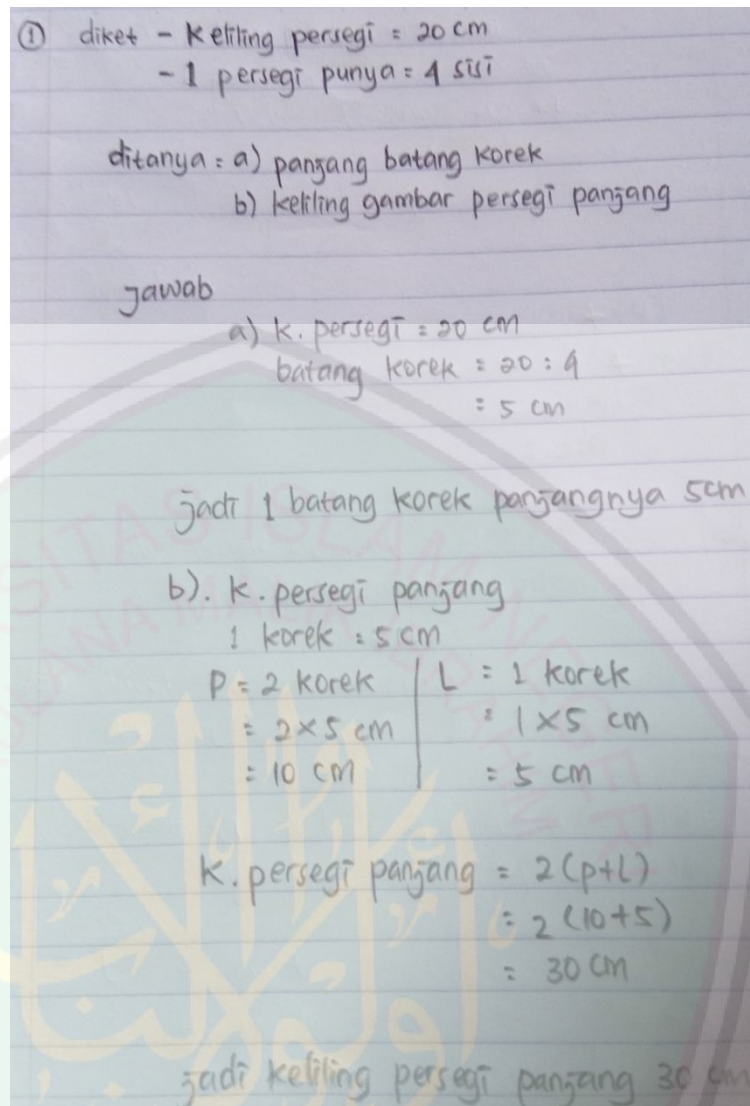 ① diket - Keliling persegi = 20 cm
- 1 persegi punya = 4 sisi
ditanya = a) panjang batang korek
b) keliling gambar persegi panjang
Jawab
a) K. persegi = 20 cm
batang korek = 20 : 4
= 5 cm
jadi 1 batang korek panjangnya 5cm
b). K. persegi panjang
1 korek = 5 cm
P = 2 korek | L = 1 korek
= 2 × 5 cm | = 1 × 5 cm
= 10 cm | = 5 cm
K. persegi panjang = 2 (p+l)
= 2 (10+5)
= 30 cm
jadi keliling persegi panjang 30 cm